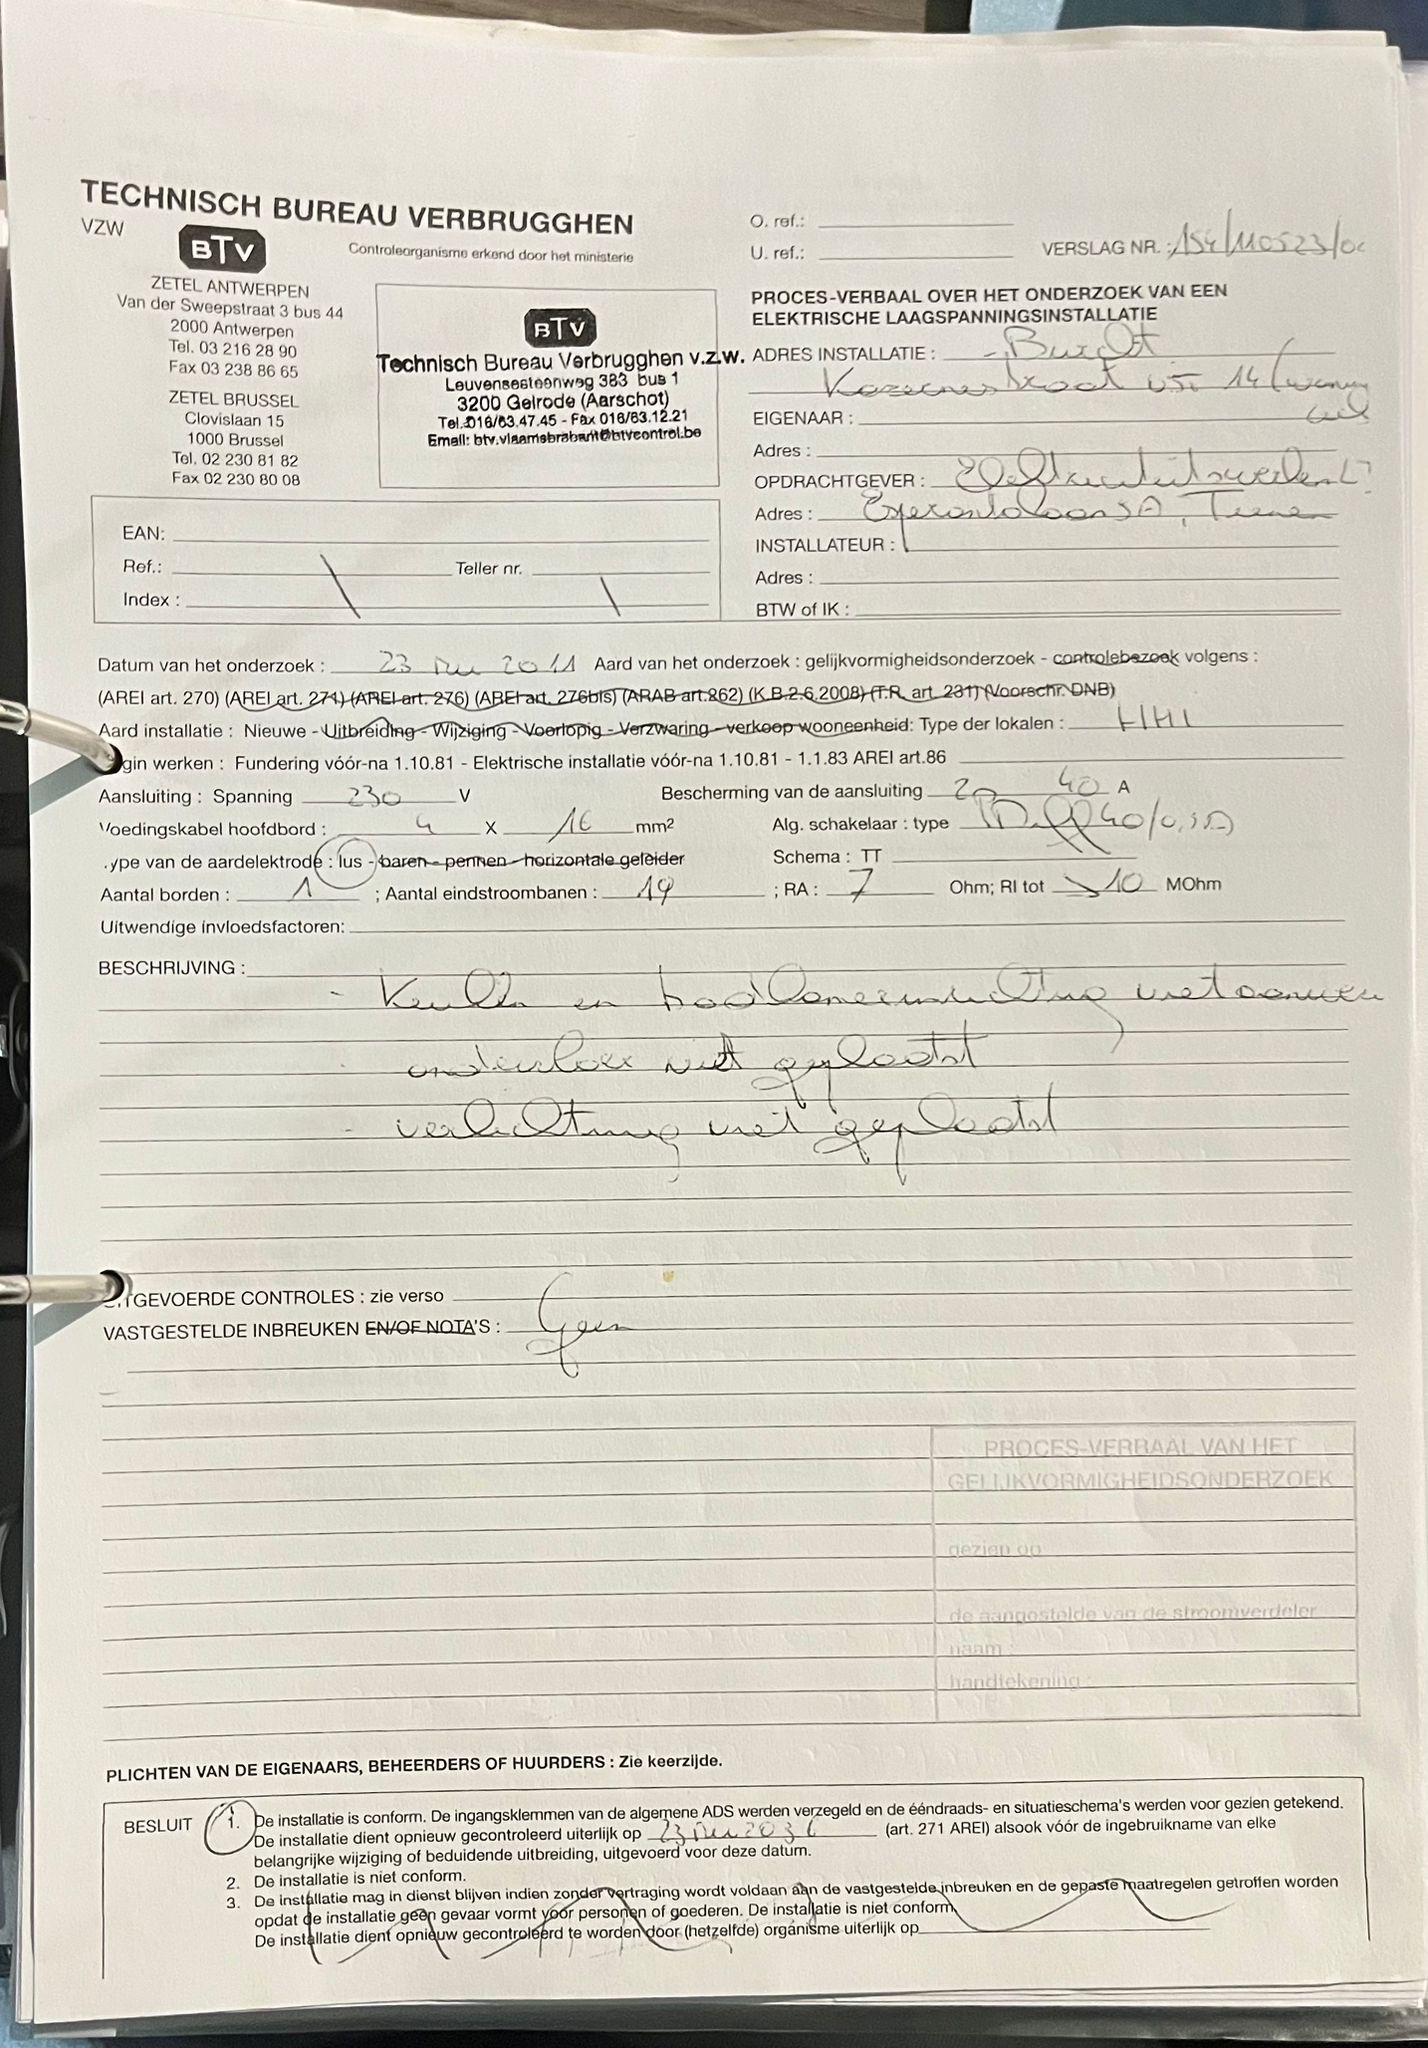 TECHNISCH BUREAU VERBRUGGHEN
VZW
BTV
Controleorganisme erkend door het ministerie
ZETEL ANTWERPEN
Van der Sweepstraat 3 bus 44
2000 Antwerpen
Tel. 03 216 28 90
Fax 03 238 86 65
ZETEL BRUSSEL
Clovislaan 15
1000 Brussel
Tel. 02 230 81 82
Fax 02 230 80 08
BTV
Technisch Bureau Verbrugghen v.z.w.
Leuvensesteenweg 383 bus 1
3200 Gelrode (Aarschot)
Tel.:016/63.47.45 - Fax 016/63.12.21
Email: btv.vlaamsbrabant@btvcontrol.be
O. ref.:
U. ref.:
VERSLAG NR. : 154/110523/0
PROCES-VERBAAL OVER HET ONDERZOEK VAN EEN
ELEKTRISCHE LAAGSPANNINGSINSTALLATIE
ADRES INSTALLATIE :
Kazernestraat 14
EIGENAAR :
Adres :
OPDRACHTGEVER : Elektriciteitswerken
Adres : Esperantolaan 5A, Tienen
INSTALLATEUR :
Adres :
BTW of IK :
EAN:
Ref.: Teller nr.
Index :
Datum van het onderzoek : 23 2011 Aard van het onderzoek : gelijkvormigheidsonderzoek - controlebezoek volgens :
(AREI art. 270) (AREI art. 271) (AREI art. 276) (AREI art. 276bis) (ARAB art.262) (K.B.2.6.2008) (T.R. art. 231) (Voorschr. DNB)
Aard installatie : Nieuwe - Uitbreiding - Wijziging - Voorlopig - Verzwaring - verkoop wooneenheid: Type der lokalen :
gin werken : Fundering vóór-na 1.10.81 - Elektrische installatie vóór-na 1.10.81 - 1.1.83 AREI art.86
Aansluiting : Spanning 230 V Bescherming van de aansluiting 40 A
Voedingskabel hoofdbord : 4 X 16 mm² Alg. schakelaar : type Diff 40/0,3A
ype van de aardelektrode : lus - baren - pennen - horizontale geleider Schema : TT
Aantal borden : 1 ; Aantal eindstroombanen : 19 ; RA : 7 Ohm; RI tot >10 MOhm
Uitwendige invloedsfactoren:
BESCHRIJVING :
- Keuken en badkamerinrichting niet aanwezig
- ondervloer niet geplaatst
- verlichting niet geplaatst
ITGEVOERDE CONTROLES : zie verso
VASTGESTELDE INBREUKEN EN/OF NOTA'S : Geen
PROCES-VERBAAL VAN HET
GELIJKVORMIGHEIDSONDERZOEK
gezien op
de aangestelde van de stroomverdeler
naam :
handtekening :
PLICHTEN VAN DE EIGENAARS, BEHEERDERS OF HUURDERS : Zie keerzijde.
BESLUIT 1. De installatie is conform. De ingangsklemmen van de algemene ADS werden verzegeld en de ééndraads- en situatieschema's werden voor gezien getekend.
De installatie dient opnieuw gecontroleerd uiterlijk op 23 2036 (art. 271 AREI) alsook vóór de ingebruikname van elke
belangrijke wijziging of beduidende uitbreiding, uitgevoerd voor deze datum.
2. De installatie is niet conform.
3. De installatie mag in dienst blijven indien zonder vertraging wordt voldaan aan de vastgestelde inbreuken en de gepaste maatregelen getroffen worden
opdat de installatie geen gevaar vormt voor personen of goederen. De installatie is niet conform.
De installatie dient opnieuw gecontroleerd te worden door (hetzelfde) organisme uiterlijk op